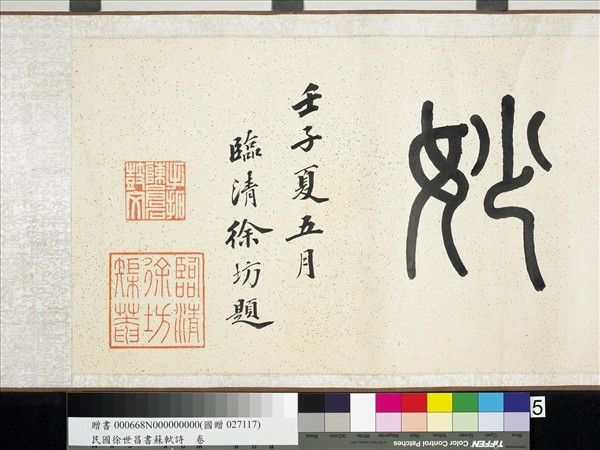 妙
壬子夏五月
臨清徐坊題
臨清
徐坊
贈書 000668N000000000(國贈 027117)
民國徐世昌書蘇軾詩　卷
5
Blue
Cyan
Green
Yellow
Red
Magenta
White
3/Color
Black
TIFFEN Color Control Patches